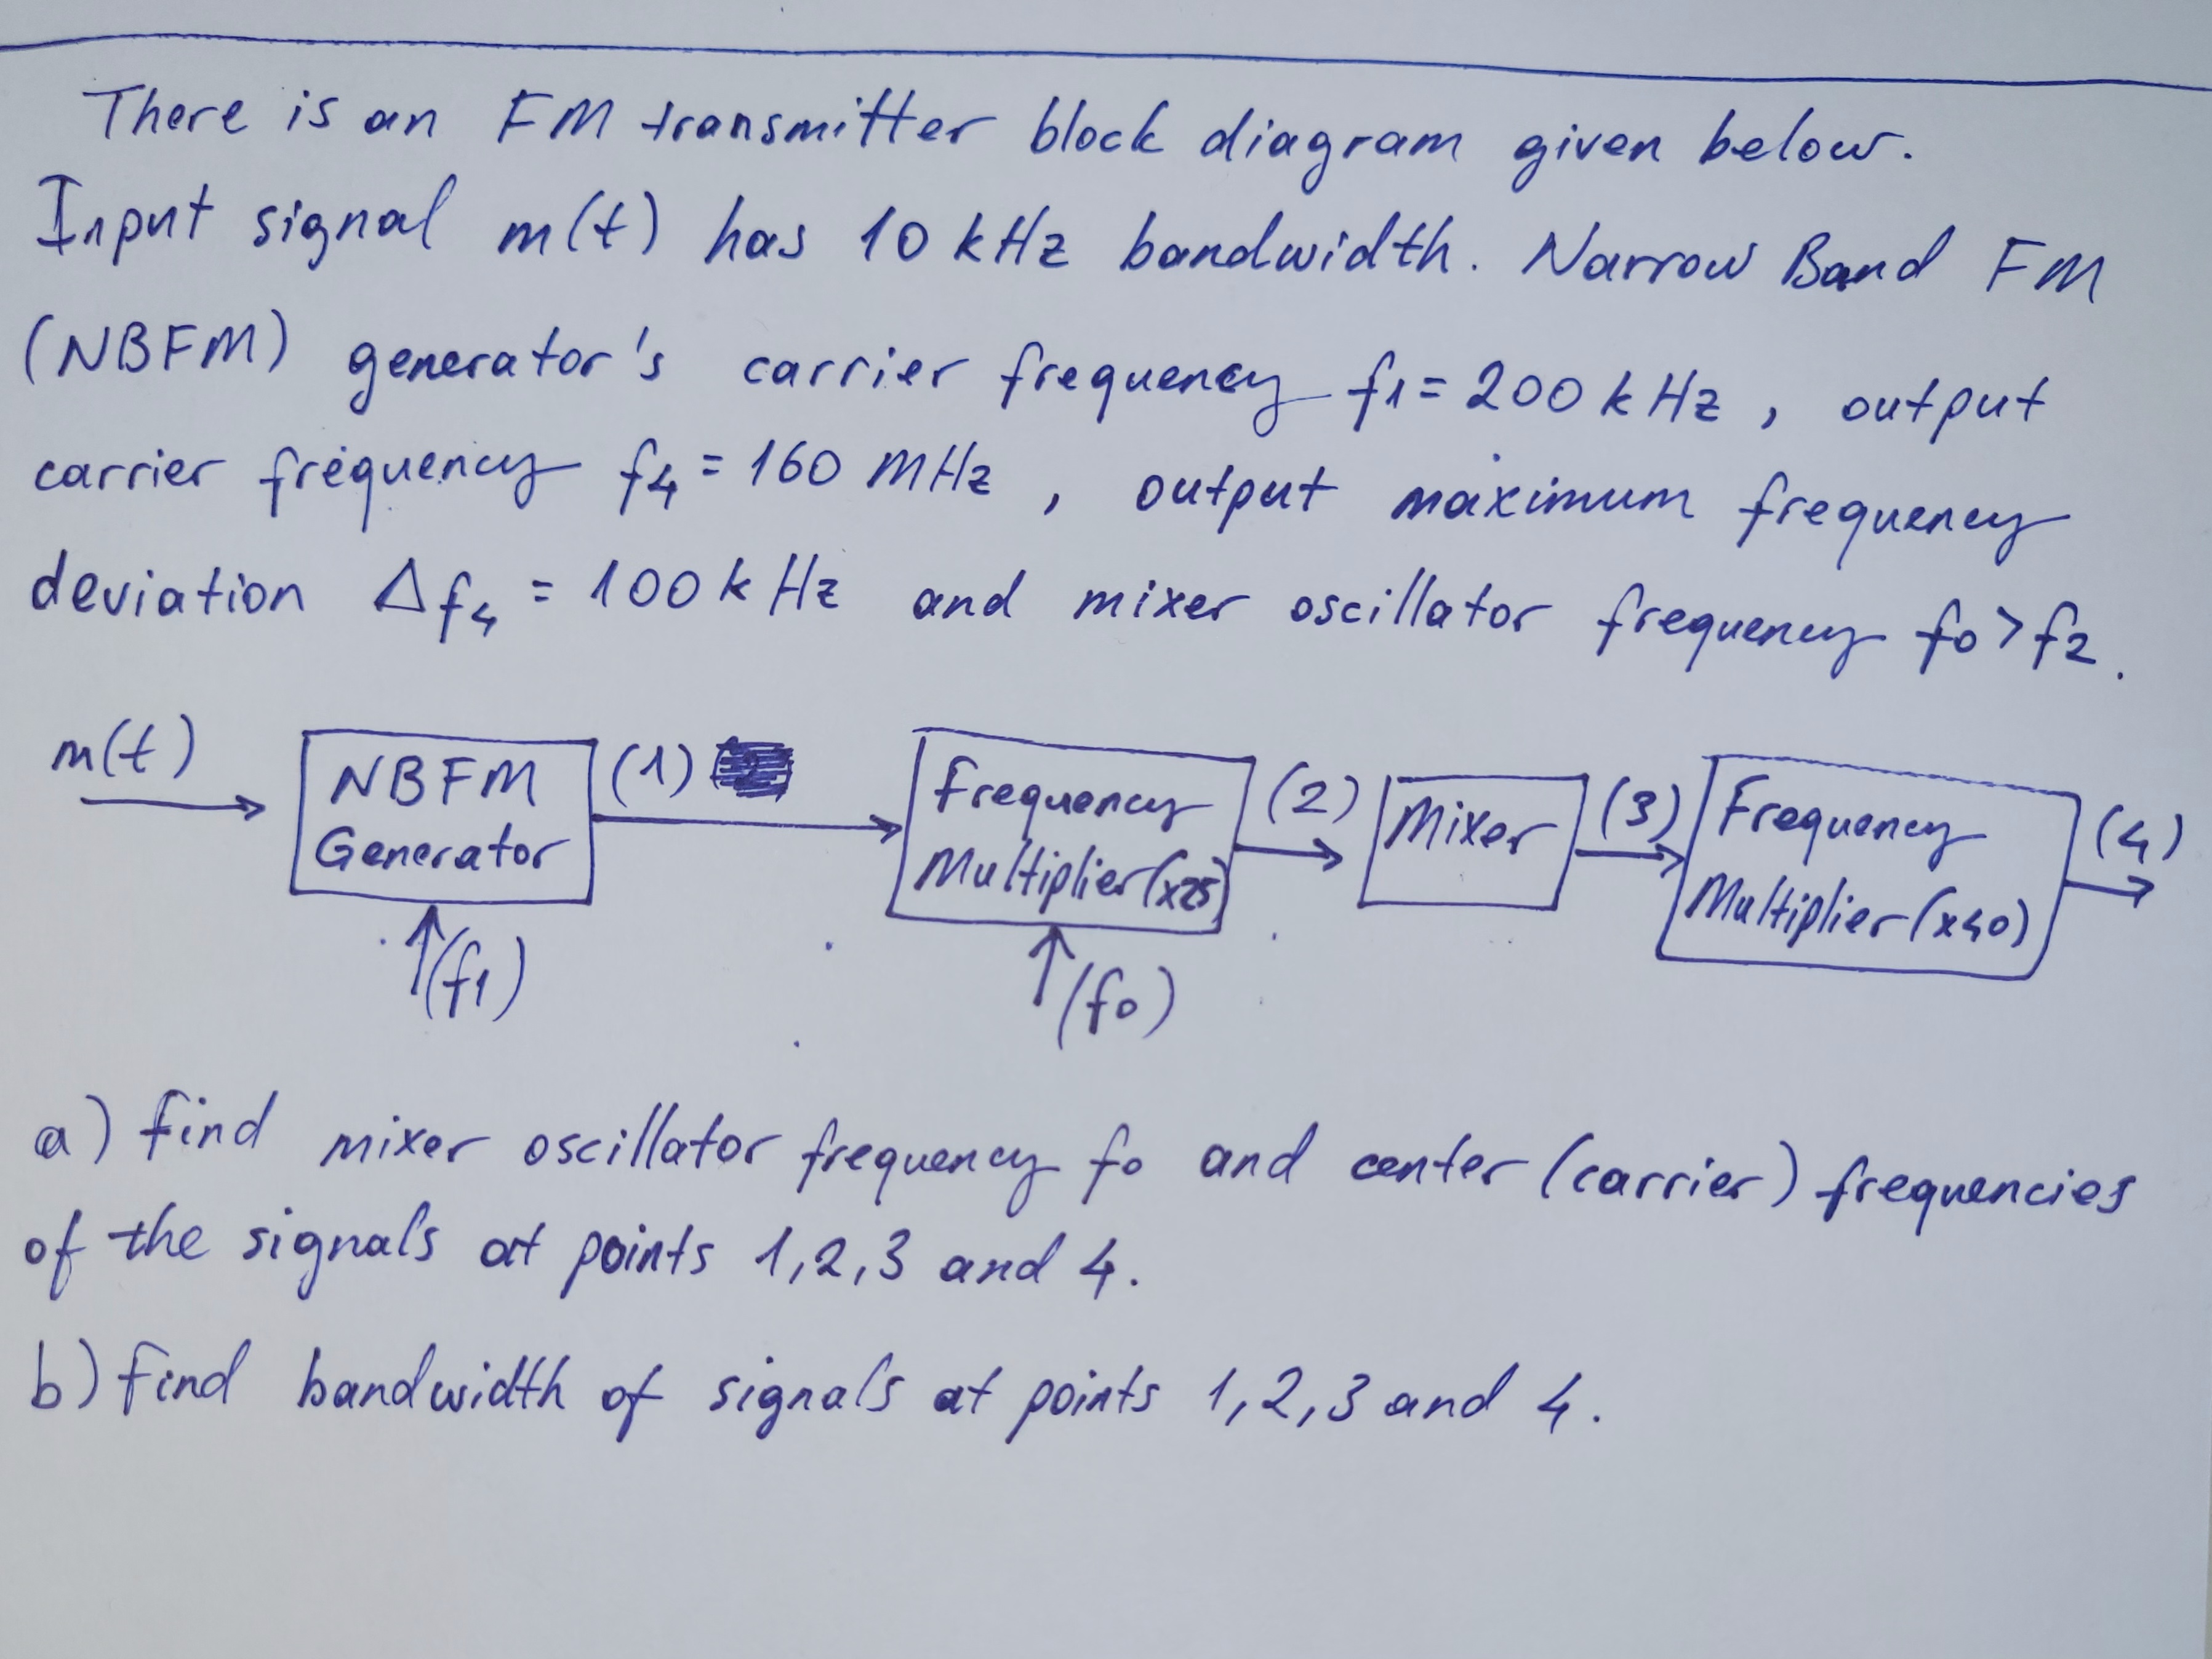 There is an FM transmitter block diagram given below.
Input signal m(t) has 10 kHz bandwidth. Narrow Band FM
(NBFM) generator's carrier frequency f1 = 200 kHz, output
carrier frequency f4 = 160 MHz, output maximum frequency
deviation Δf4 = 100 kHz and mixer oscillator frequency f0 > f2.
m(t)
NBFM
Generator
(1)
(f1)
Frequency
Multiplier (x25)
(f0)
(2)
Mixer
(3)
Frequency
Multiplier (x40)
(4)
a) find mixer oscillator frequency f0 and center (carrier) frequencies
of the signals at points 1,2,3 and 4.
b) find bandwidth of signals at points 1,2,3 and 4.